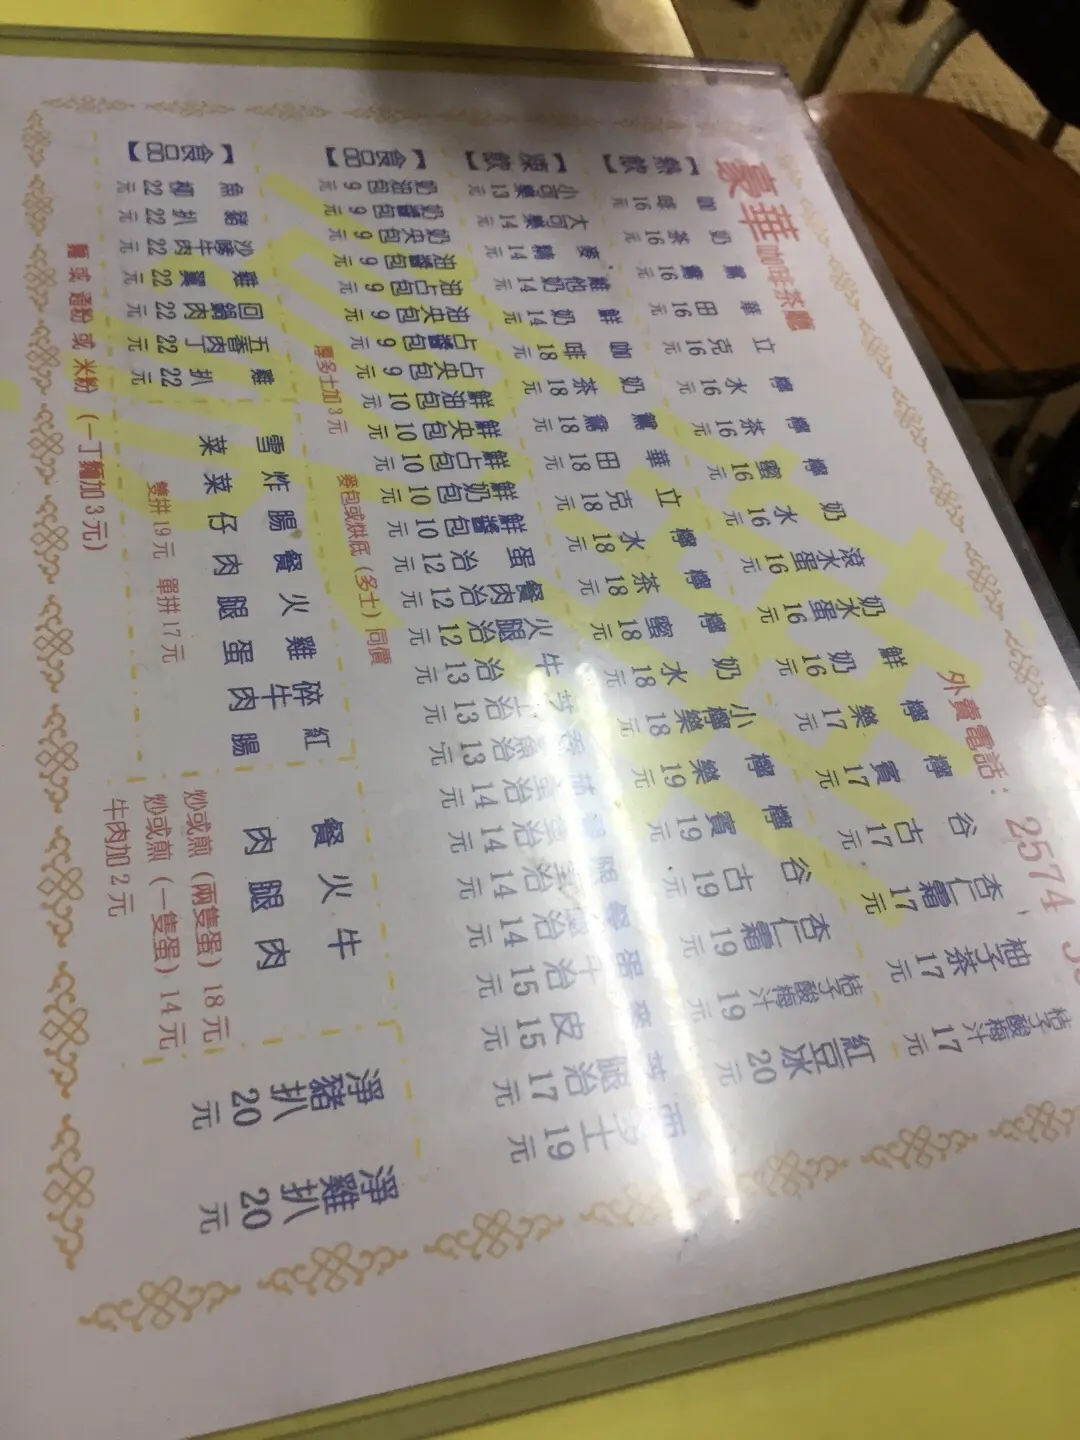 豪華咖啡茶廳
外賣電話：2574
【熱飲】
咖啡 16元
奶茶 16元
鴛鴦 16元
華田 16元
立克 16元
檸水 16元
檸茶 16元
檸蜜 16元
奶水 16元
滾水蛋 16元
奶水蛋 16元
鮮奶 16元
檸樂 17元
檸賓 17元
谷古 17元
杏仁霜 17元
柚子茶 17元
桔子酸梅汁 17元
【凍飲】
小可樂 13元
大可樂 14元
麥精 14元
維他奶 14元
鮮奶 14元
咖啡 18元
奶茶 18元
鴛鴦 18元
華田 18元
立克 18元
檸水 18元
檸茶 18元
檸蜜 18元
奶水 18元
小檸樂 18元
檸樂 19元
檸賓 19元
谷古 19元
杏仁霜 19元
桔子酸梅汁 19元
紅豆冰 20元
【食品】
奶油包 9元
奶醬包 9元
奶央包 9元
油醬包 9元
油占包 9元
油央包 9元
占醬包 9元
占央包 9元
鮮油包 10元
鮮央包 10元
鮮占包 10元
鮮奶包 10元
鮮醬包 10元
蛋治 12元
餐肉治 12元
火腿治 12元
牛治 13元
芝士治 13元
魚治 13元
治 14元
治 14元
治 14元
治 14元
治 15元
皮 15元
腿治 17元
西多士 19元
厚多士加3元
麥包或烘底（多士）同價
【食品】
魚柳 22元
豬扒 22元
沙嗲牛肉 22元
雞翼 22元
回鍋肉 22元
五香肉丁 22元
雞扒 22元
雪菜
炸菜
腸仔
餐肉
火腿
雞蛋
碎牛肉
紅腸
雙拼19元 單拼17元
餐肉
火腿
牛肉
炒或煎（兩隻蛋）18元
炒或煎（一隻蛋）14元
牛肉加2元
淨豬扒 20元
淨雞扒 20元
麵 或 通粉 或 米粉 （一丁麵加3元）